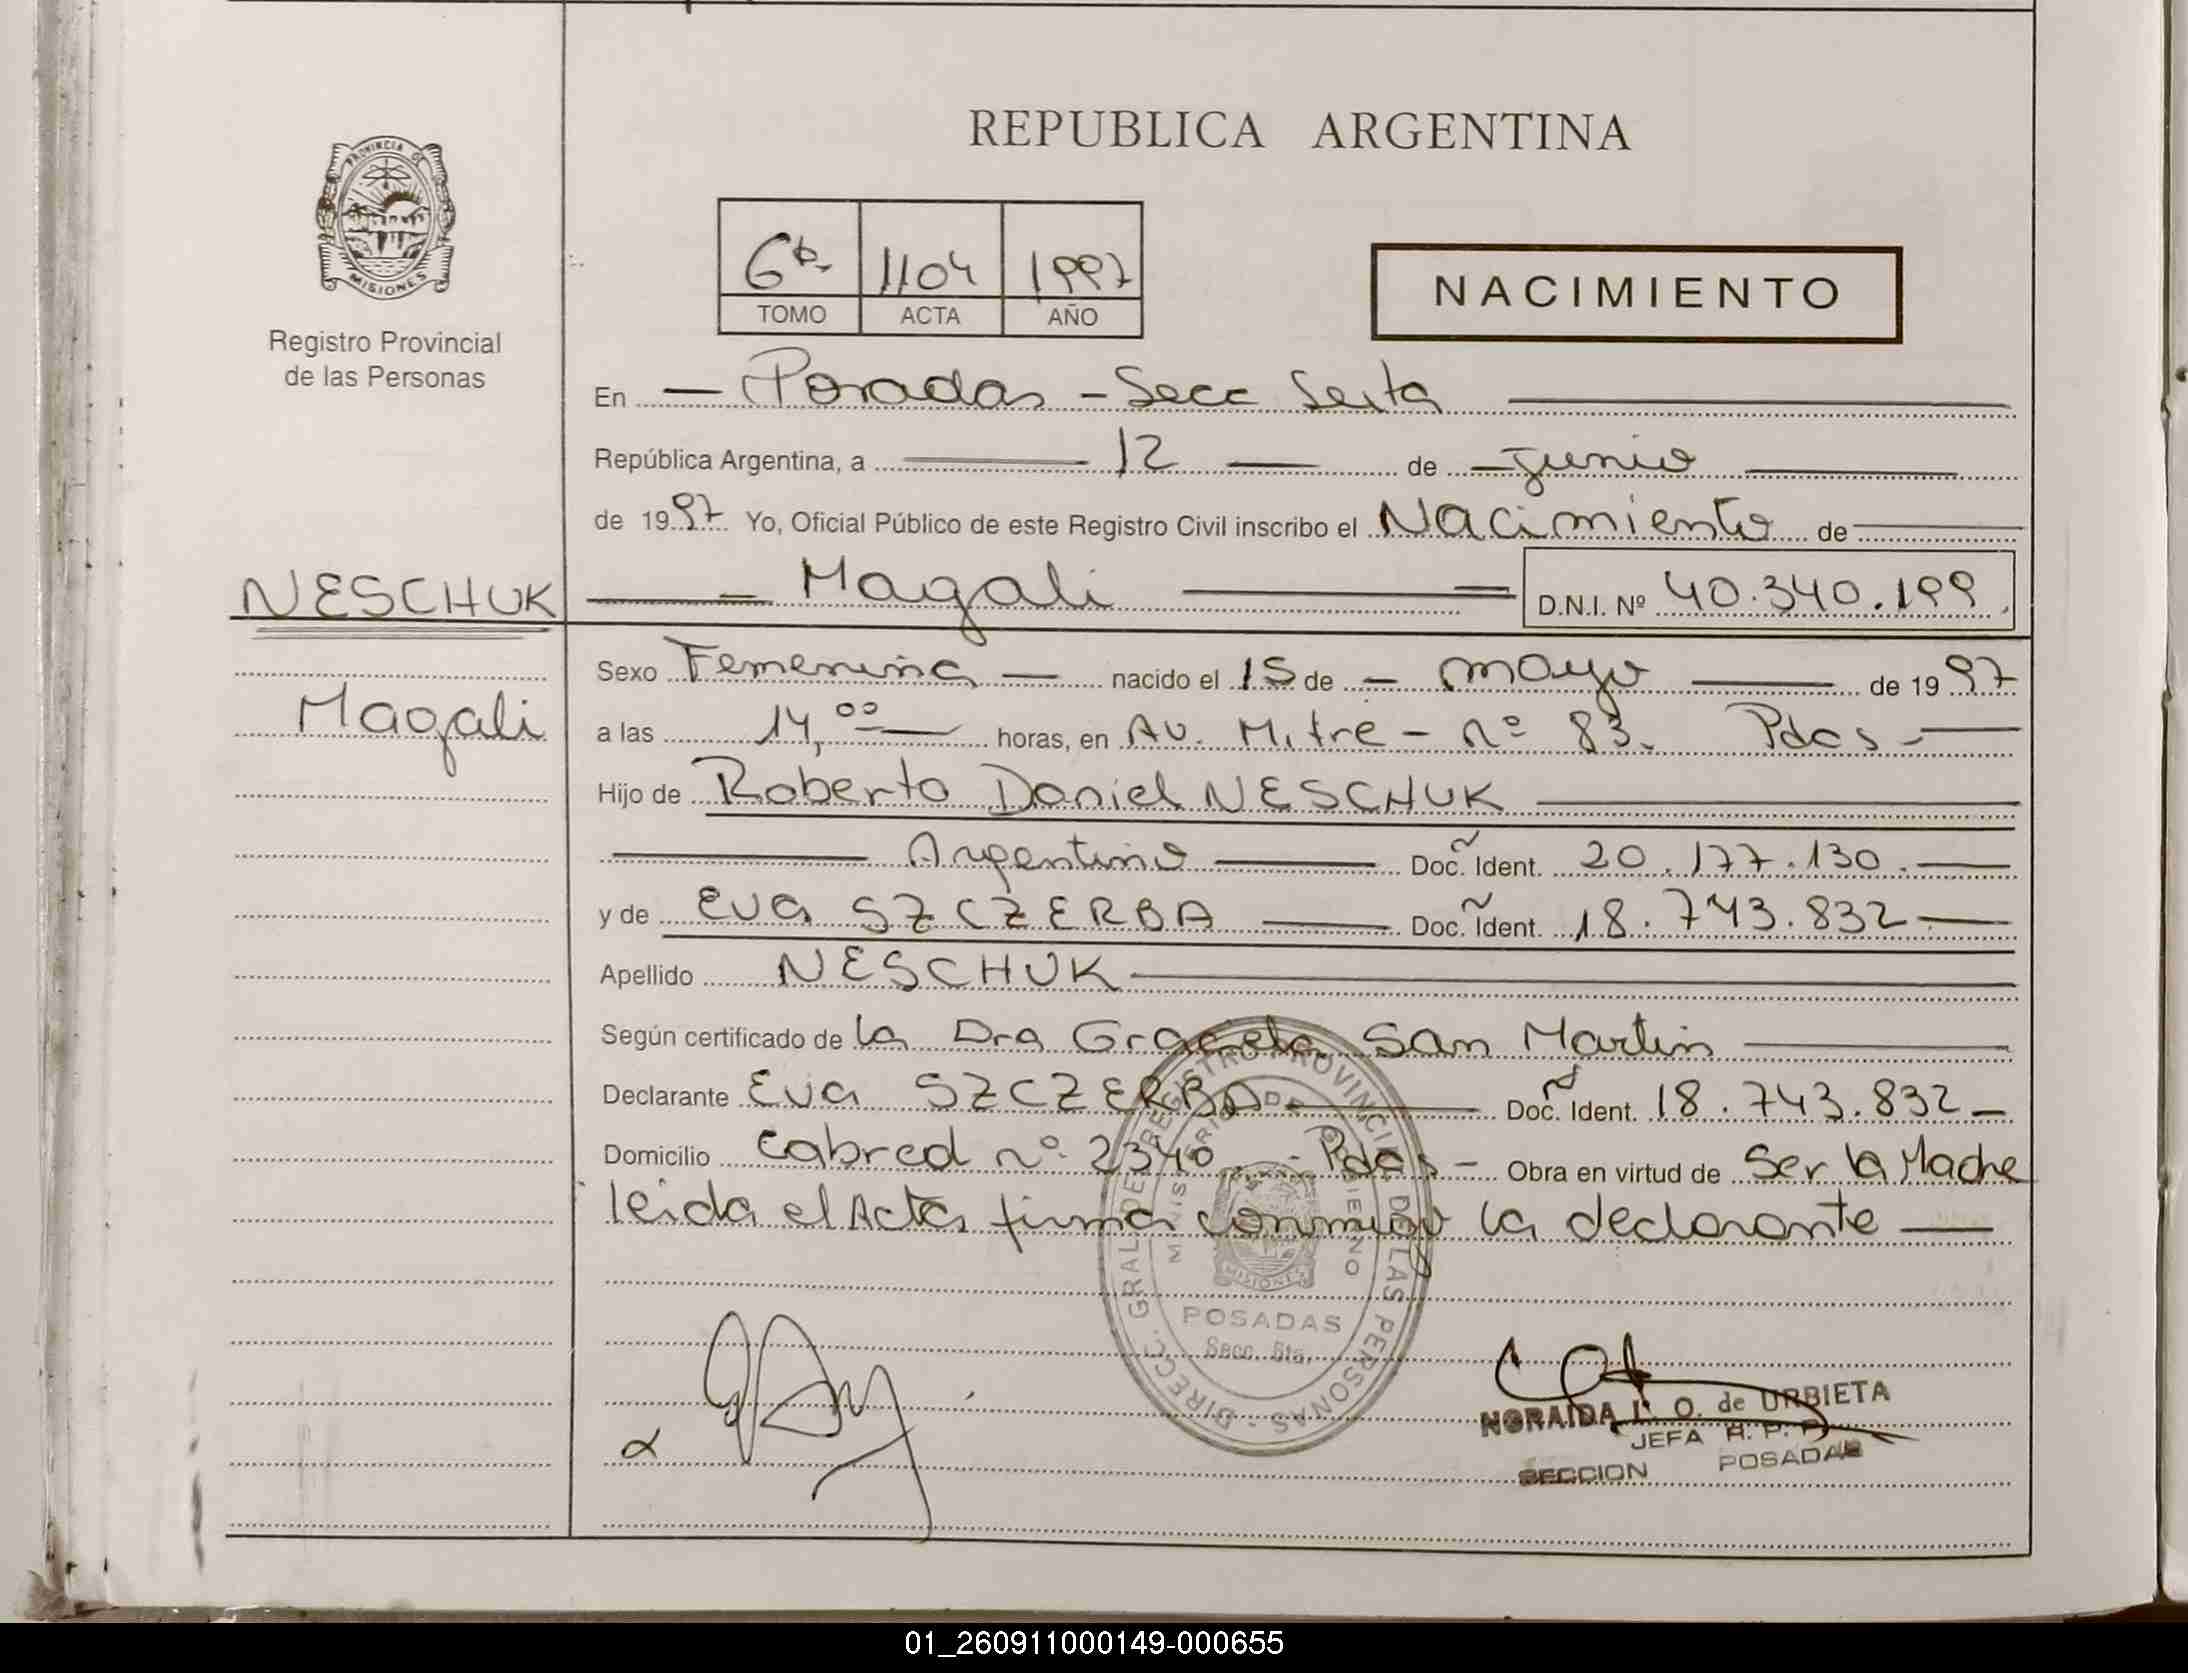 REPUBLICA ARGENTINA
PROVINCIA DE
MISIONES
Registro Provincial
de las Personas
6to 1104 1997
TOMO ACTA AÑO
NACIMIENTO
En — Posadas - Secc Sexta
República Argentina, a 12 de - Junio
de 1997 Yo, Oficial Público de este Registro Civil inscribo el Nacimiento de
NESCHUK
Magali D.N.I. Nº 40.340.199.
Magali
Sexo Femenina — nacido el 15 de - mayo — de 1997
a las 14,00 — horas, en Av. Mitre - nº 83. Pdas -
Hijo de Roberto Daniel NESCHUK
Argentino — Doc. Ident. 20.177.130. —
y de Eva SZCZERBA — Doc. Ident. 18.743.832 —
Apellido NESCHUK
Según certificado de la Dra Graciela San Martin
Declarante Eva SZCZERBA — Doc. Ident. 18.743.832 —
Domicilio Cabred nº 2340 - Pdas - Obra en virtud de Ser la Madre
leida el Acta firma conmigo la declarante —
DIRECC. GRAL. DE REGISTRO PROVINCIAL DE LAS PERSONAS -
MINISTERIO DE GOBIERNO
MISIONES
POSADAS
Secc. 6ta.
NORAIDA I. O. de URBIETA
JEFA R. P. P.
SECCION POSADAS
01_260911000149-000655